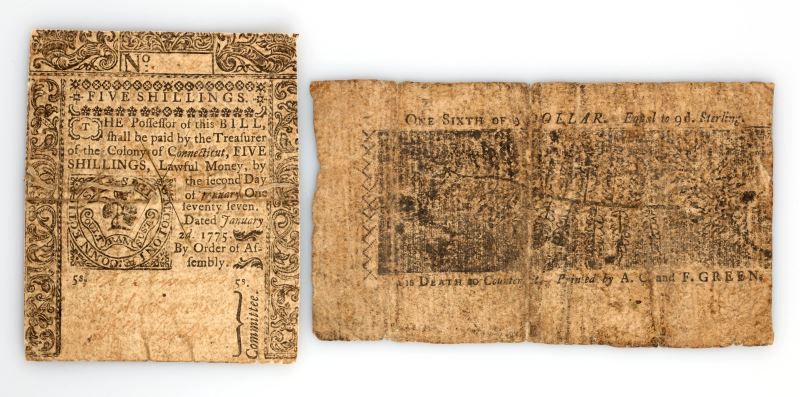 No.
FIVE SHILLINGS.
THE Possessor of this BILL,
shall be paid by the Treasurer
of the Colony of Connecticut, FIVE
SHILLINGS, Lawful Money, by
the second Day
of January One
seventy seven.
Dated January
2d. 1775
By Order of As-
sembly.
5s.
5s.
Committee.
ONE SIXTH OF a DOLLAR. Equal to 9d. Sterling.
is DEATH to Counterfeit. Printed by A. C. and F. GREEN.